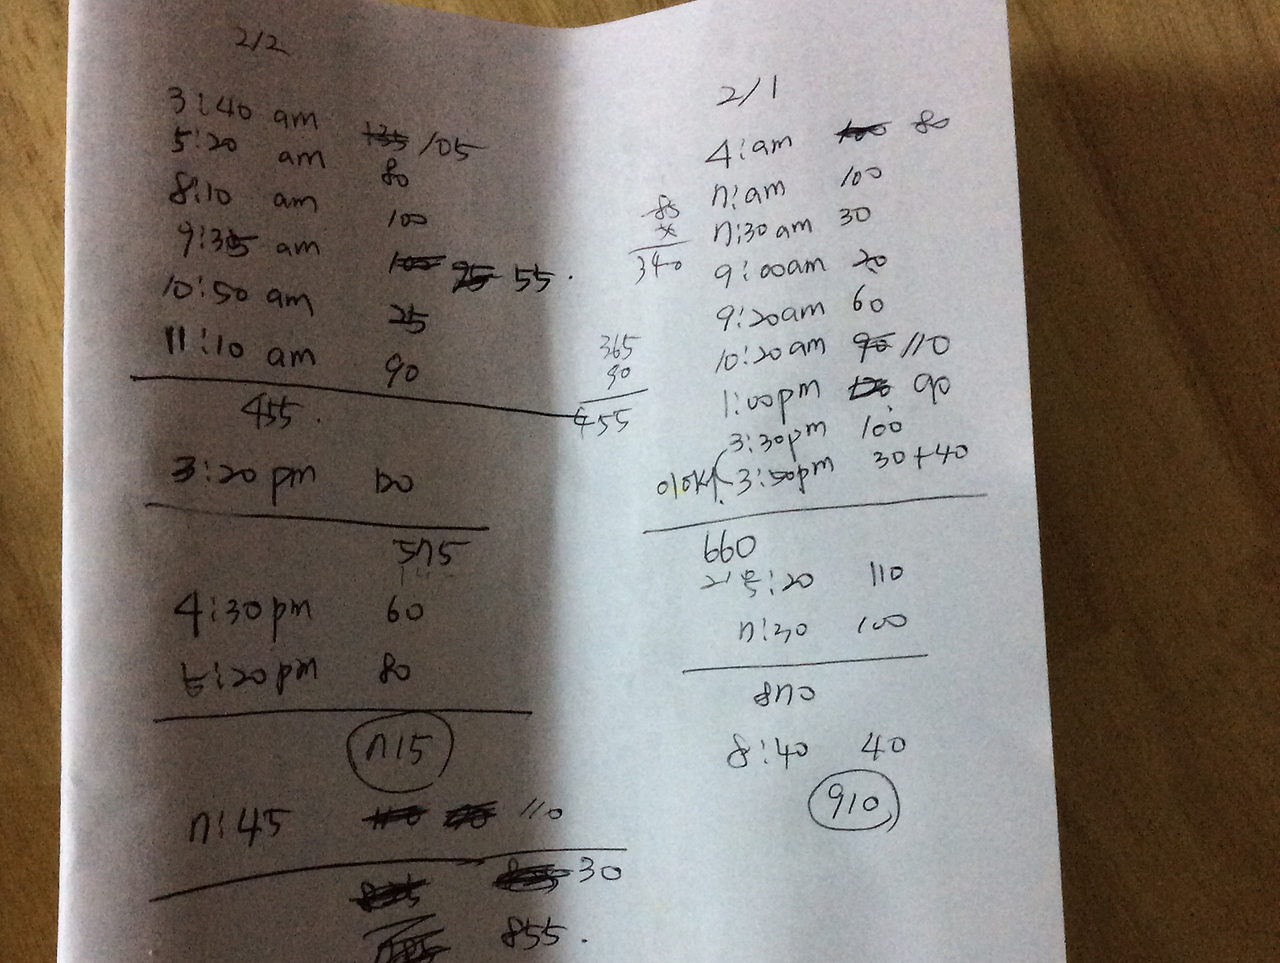 2/2
3:40 am 105
5:20 am 80
8:10 am 100
9:35 am 55.
10:50 am 25
11:10 am 90
455.
3:20 pm 120
575
4:30 pm 60
5:20 pm 80
715
7:45 110
30
855.
340
365
90
455
2/1
4:am 80
7:am 100
7:30 am 30
9:00am 20
9:20am 60
10:20am 110
1:00pm 90
3:30pm 100
3:50pm 30+40
660
5:20 110
7:30 100
870
8:40 40
910